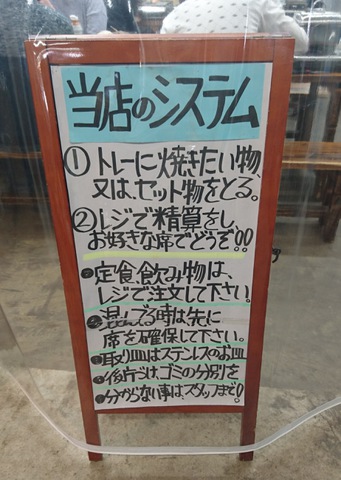 当店のシステム
①トレーに焼きたい物、
又は、セット物をとる。
②レジで精算をし、
お好きな席でどうぞ!!
定食、飲み物は、
レジで注文して下さい。
混んでる時は先に
席を確保して下さい。
取り皿はステンレスのお皿
後片づけ、ゴミの分別を
分からない事は、スタッフまで!